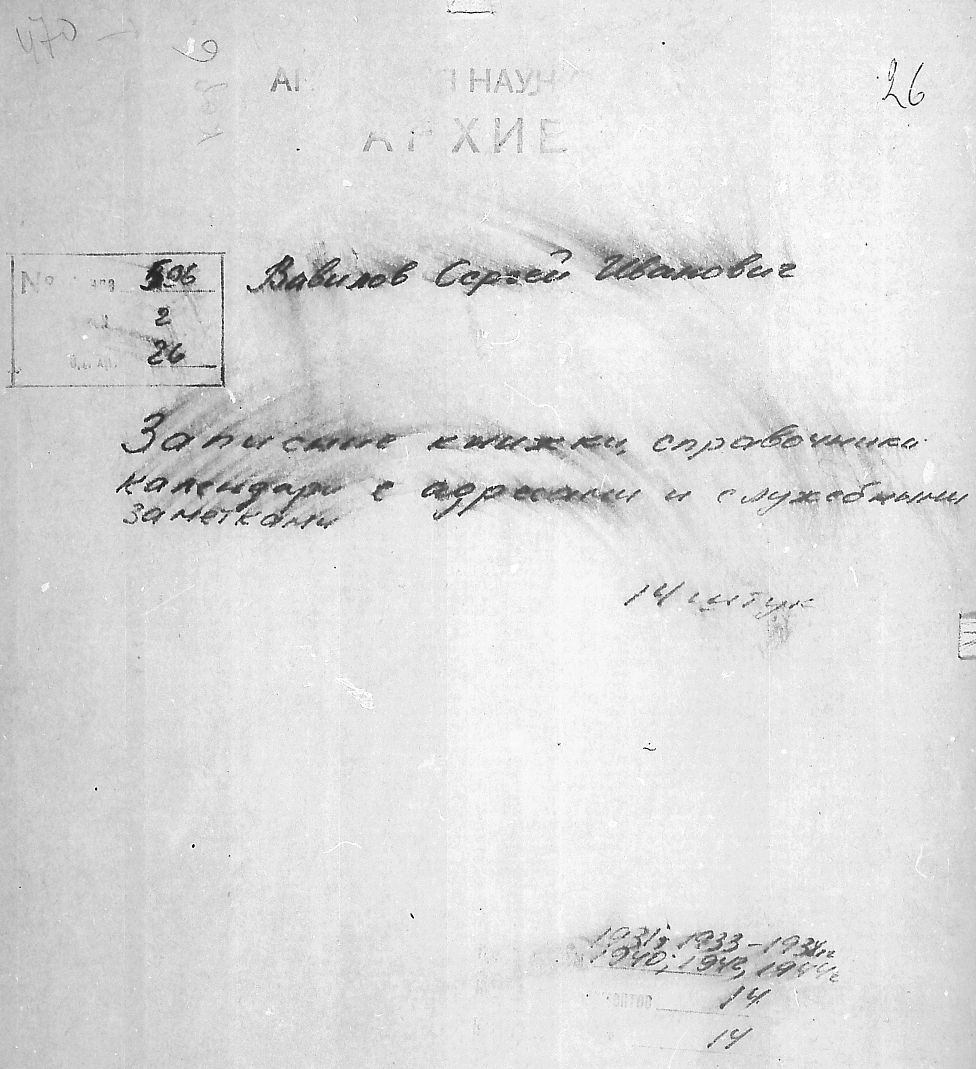 26
НАУК
АРХИВ
№ 596
2
26
Вавилов Сергей Иванович
Записные книжки, справочники
календари с адресами и служебными
заметками
14 штук
1931г, 1933-1934гг
1940, 1942, 1944г
14
14